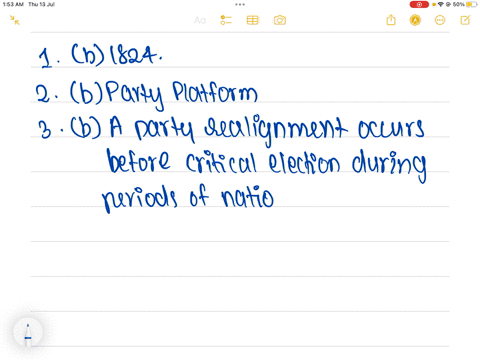 1:53 AM Thu 13 Jul
50%
Aa
1. (b) 1824.
2. (b) Party Platform
3. (b) A party realignment occurs
before critical election during
periods of natio